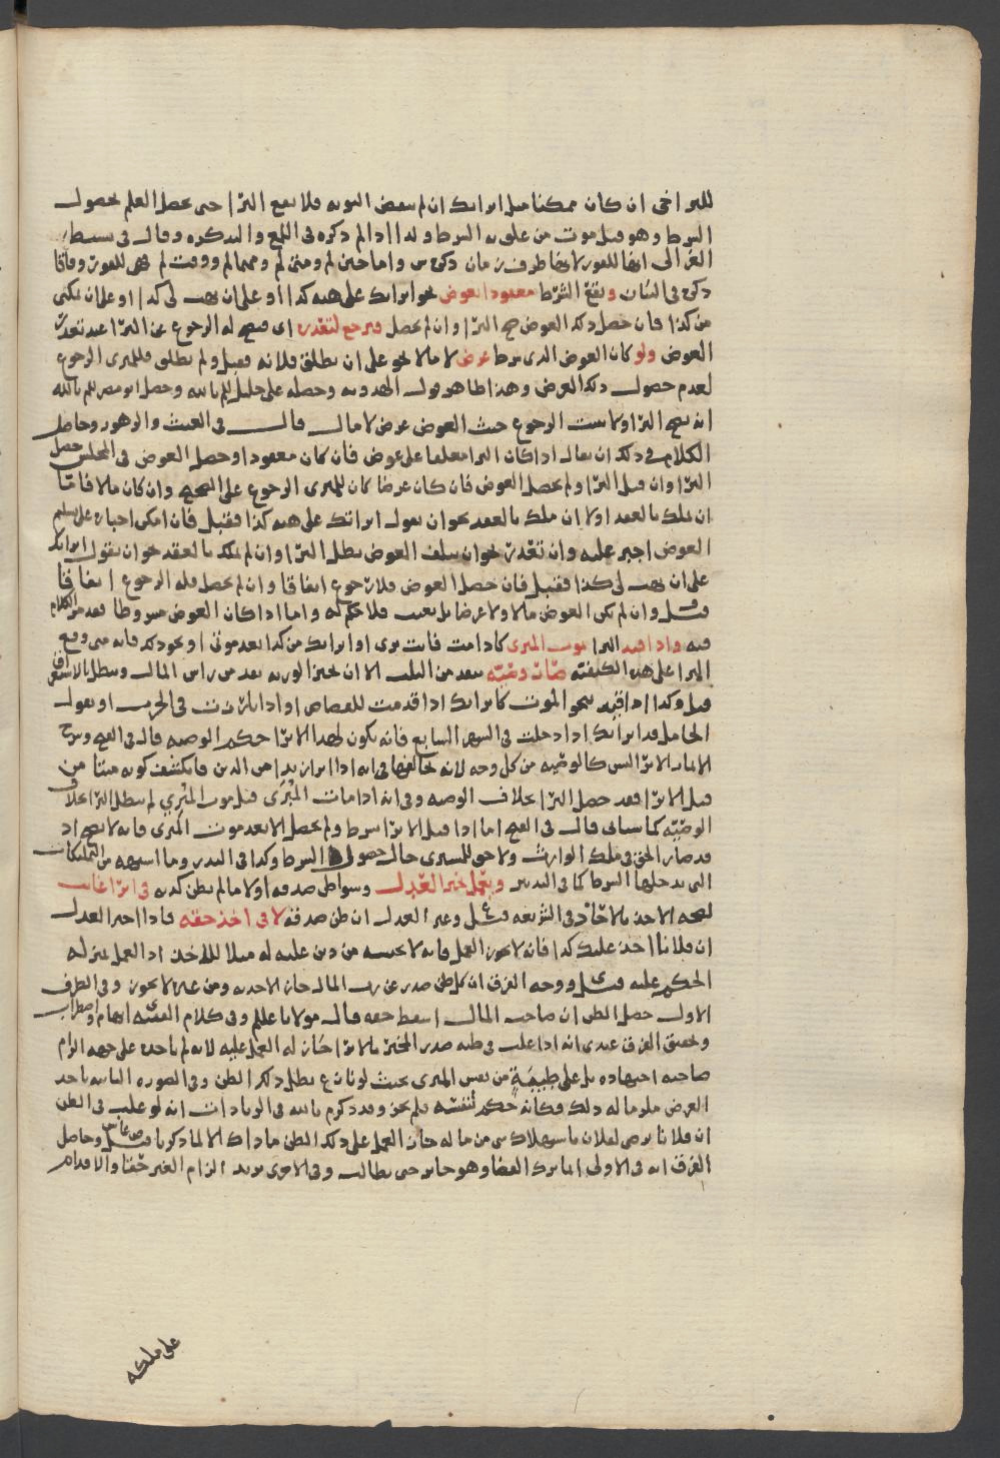 للتراخي ان كان ممكنا مثل ابراتك ان لم ينقض التوبه فلا يقع البرا حتى يحصل العلم بحصول
الشرط وهو قبل موت من علق به الشرط وله اذا لم ذكره في اللمع والتذكره وقال في بسيط
الغزالي انها للفور لانها ظرف زمان ذكره واما حين لم ومتى لم ومهما لم ووقت لم فهي للفور وفاقا
ذكره في البيان ويقع الشرط معقود العوض نحو ابراتك على هبه كذا او على ان تهب لي كذا او على ان تكفي
من كذا فان حصل ذلك العوض صح البرا وان لم يحصل فيرجع لتعذره اي فيصح له الرجوع عن البرا عند تعذر
العوض ولو كان العوض الذي شرط غرض لا مال نحو على ان تطلق فلانه فقبل ولم يطلق فللمبري الرجوع
لعدم حصول ذلك الغرض وهذا ظاهر قول الهدويه وحصله على خليل للم بالله وحصل ابو مضر للم بالله
انه يصح البرا ولا يثبت الرجوع حيث العوض غرض لا مال قال في الغيث والزهور وحاصل
الكلام في ذلك ان يقال اذا كان البرا معلقا على عوض فان كان معقودا وحصل العوض في المجلس حصل
البرا وان قبل البرا ولم يحصل العوض فان كان غرضا كان للمبري الرجوع على الصحيح وان كان مالا فاما
ان يملك بالعقد اولا ان ملك بالعقد نحو ان يقول ابراتك على هبه كذا فقبل فان امكن اجباره على تسليم
العوض اجبر عليه وان تعذر نحو ان يتلف العوض بطل البرا وان لم يملك بالعقد نحو ان يقول ابراتك
على ان تهب لي كذا فقبل فان حصل العوض فلا رجوع اتفاقا وان لم يحصل فله الرجوع اتفاقا
قيل وان لم يكن العوض مالا ولا غرضا بل بعت فلا حكم له واما اذا كان العوض مشروطا فقد مر الكلام
فيه واذا قيد البرا بموت المبري كاذا مت فانت بري او ابراتك من كذا بعد موتي او نحو ذلك فانه متى وقع
البرا على هذه الكيفيه صارت وصيه ينفذ من الثلث الا ان يجيز الورثه نفذ من راس المال ويبطل بالاستغراق
قيل وكذا اذا قيد بنحو الموت كابراتك اذا قدمت للقصاص او اذا بارزت في الحرب او يقول
الحامل قد ابراتك اذا دخلت في الشهر السابع فانه يكون لهذا الابرا حكم الوصيه قال في الفتح وشرح
الاثمار الابرا ليس كالوصيه من كل وجه لانه يخالفها في انه اذا ابرا زيدا من الدين فانكشف كونه ميتا من
قبل الابرا فقد حصل البرا بخلاف الوصيه وفي انه اذا مات المبرى قبل موت المبري لم يبطل البرا بخلاف
الوصيه كما سياتي قال في الفتح اما اذا قبل الابرا شرط ولم يحصل الا بعد موت المبري فانه لا يصح اذ
قد صار الحق في ملك الوارث ولا حق للمبري حال حصول الشرط وكذا في النذر وما اشبهه من التمليكات
التي يدخلها الشرط كما في التدبير ويعمل بخبر العدل وسوا ظن صدقه اولا ما لم يظن كذبه في ابرا غايب
لصحه الاخذ بالاحاد في الشريعه قيل وغير العدل ان ظن صدقه لا في اخذ حقه فاذا اخبر العدل
ان فلانا اخذ عليك كذا فانه لا يجوز العمل فانه لا يحبسه من دين عليه له مثلا للاخذ اذ العمل بمنزله
الحكم عليه قيل ووجه الفرق ان كل ظن صدر عن رب المال جاز الاخذ به ومن غيره لا يجوز وفي الطرف
الاول حصل الظن ان صاحب المال اسقط حقه قال مولانا علم وفي كلام الفقيه ابهام واضطراب
وتحقيق الفرق عندي انه اذا غلب في ظنه صدق المخبر بالابرا جاز له العمل عليه لانه لم ياخذه على جهه الزام
صاحبه اجتهاده بل على طيبة من نفس المبري بحيث لو نازع بطل ذلك الظن وفي الصوره الثانيه ياخذ
العرض ملزما له ذلك فكانه حكم لنفسه فلم يجز وقد ذكر م بالله في الزيادات انه لو غلب في الظن
ان فلانا يرضى لفلان باستهلاك شي من ماله جاز العمل على ذلك الظن ما ذاك الا لما ذكرنا وحاصل
الفرق انه في الاولى انما يترك القضا وهو جايز حتى يطالب وفي الاخرى يريد الزام الغير حقا والاقدام
على ملكه